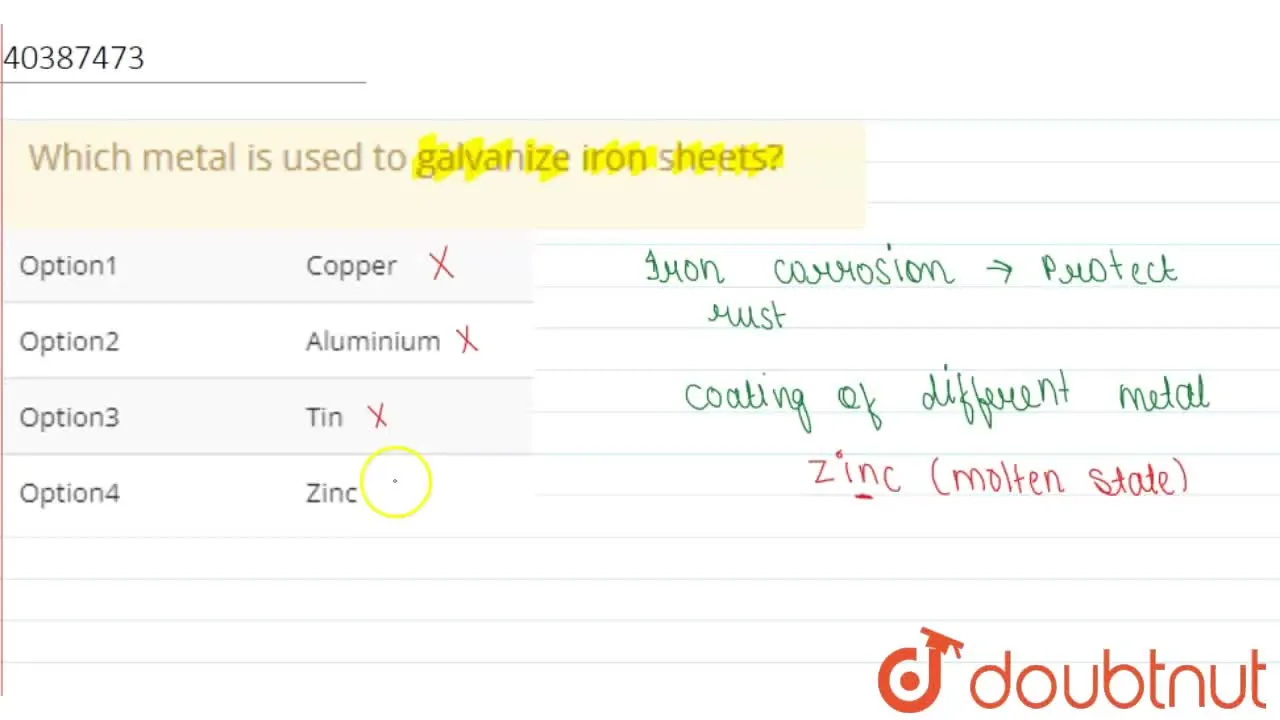 40387473
Which metal is used to galvanize iron sheets?
Option1 Copper X
Option2 Aluminium X
Option3 Tin X
Option4 Zinc
Iron corrosion → Protect
rust
coating of different metal
Zinc (molten state)
doubtnut